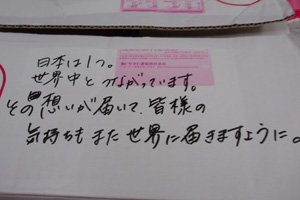 日本は1つ。
世界中とつながっています。
その想いが届いて、皆様の
気持ちもまた世界に届きますように。